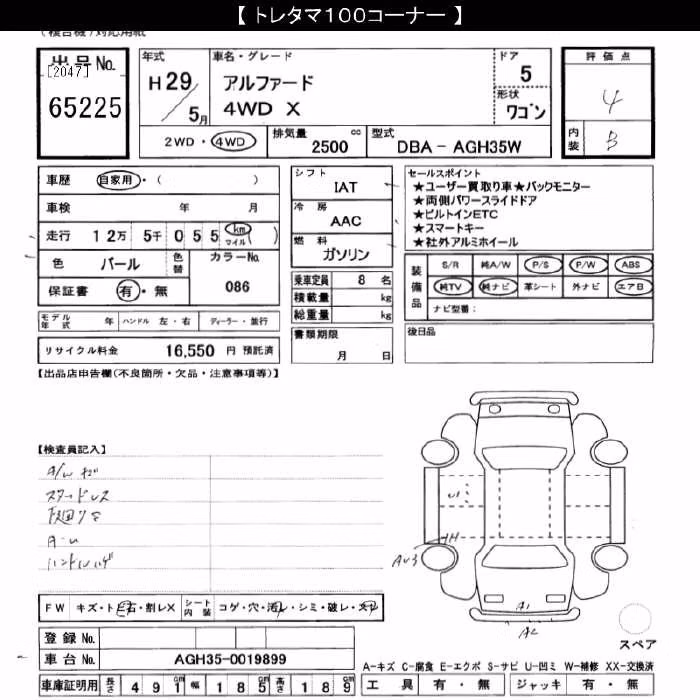 【 トレタマ100コーナー 】
出品No.
[2047]
65225
年式
H 29
5月
車名・グレード
アルファード
4WD X
ドア
5
形状
ワゴン
2WD・4WD
排気量
2500 cc
型式
DBA - AGH35W
評価点
4
内装
B
車歴 自家用・( )
車検 年 月
走行 12万 5千 055 km マイル ( )
色 パール
色替
カラーNo.
086
保証書 有・無
シフト
IAT
冷房
AAC
燃料
ガソリン
乗車定員 8 名
積載量 kg
総重量 kg
セールスポイント
★ユーザー買取り車★バックモニター
★両側パワースライドドア
★ビルトインETC
★スマートキー
★社外アルミホイール
装備品
S/R 純A/W P/S P/W ABS
純TV 純ナビ 革シート 外ナビ エアB
ナビ型番:
モデル年式 年 ハンドル 左・右 ディーラー・並行
リサイクル料金 16,550 円 預託済
書類期限
月 日
後日品
【出品店申告欄(不良箇所・欠品・注意事項等)】
【検査員記入】
A/W キズ
スタッドレス
ハンドルハゲ
U1
AU3
A1
A2
FW キズ・ト石・割レX シート内装 コゲ・穴・汚レ・シミ・破レ・スレ
登録No.
車台No. AGH35-0019899
車庫証明用 長さ 491 cm 幅 185 cm 高さ 189 cm
スペア
A-キズ C-腐食 E-エクボ S-サビ U-凹ミ W-補修 XX-交換済
工具 有・無 ジャッキ 有・無